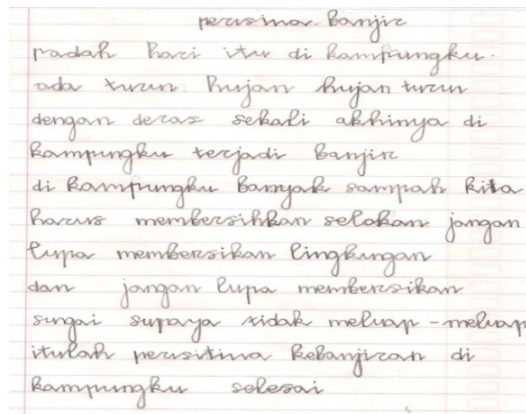 perisma Banjir
padah hari itu di kampungku.
ada turun hujan hujan turun
dengan deras sekali akhinya di
kampungku terjadi Banjir
di kampungku Banyak sampah kita
harus membersihkan selokan jangan
lupa membersikan lingkungan
dan jangan lupa membersikan
sungai supaya tidak meluap-meluap
itulah perisitiwa kebanjiran di
kampungku selesai